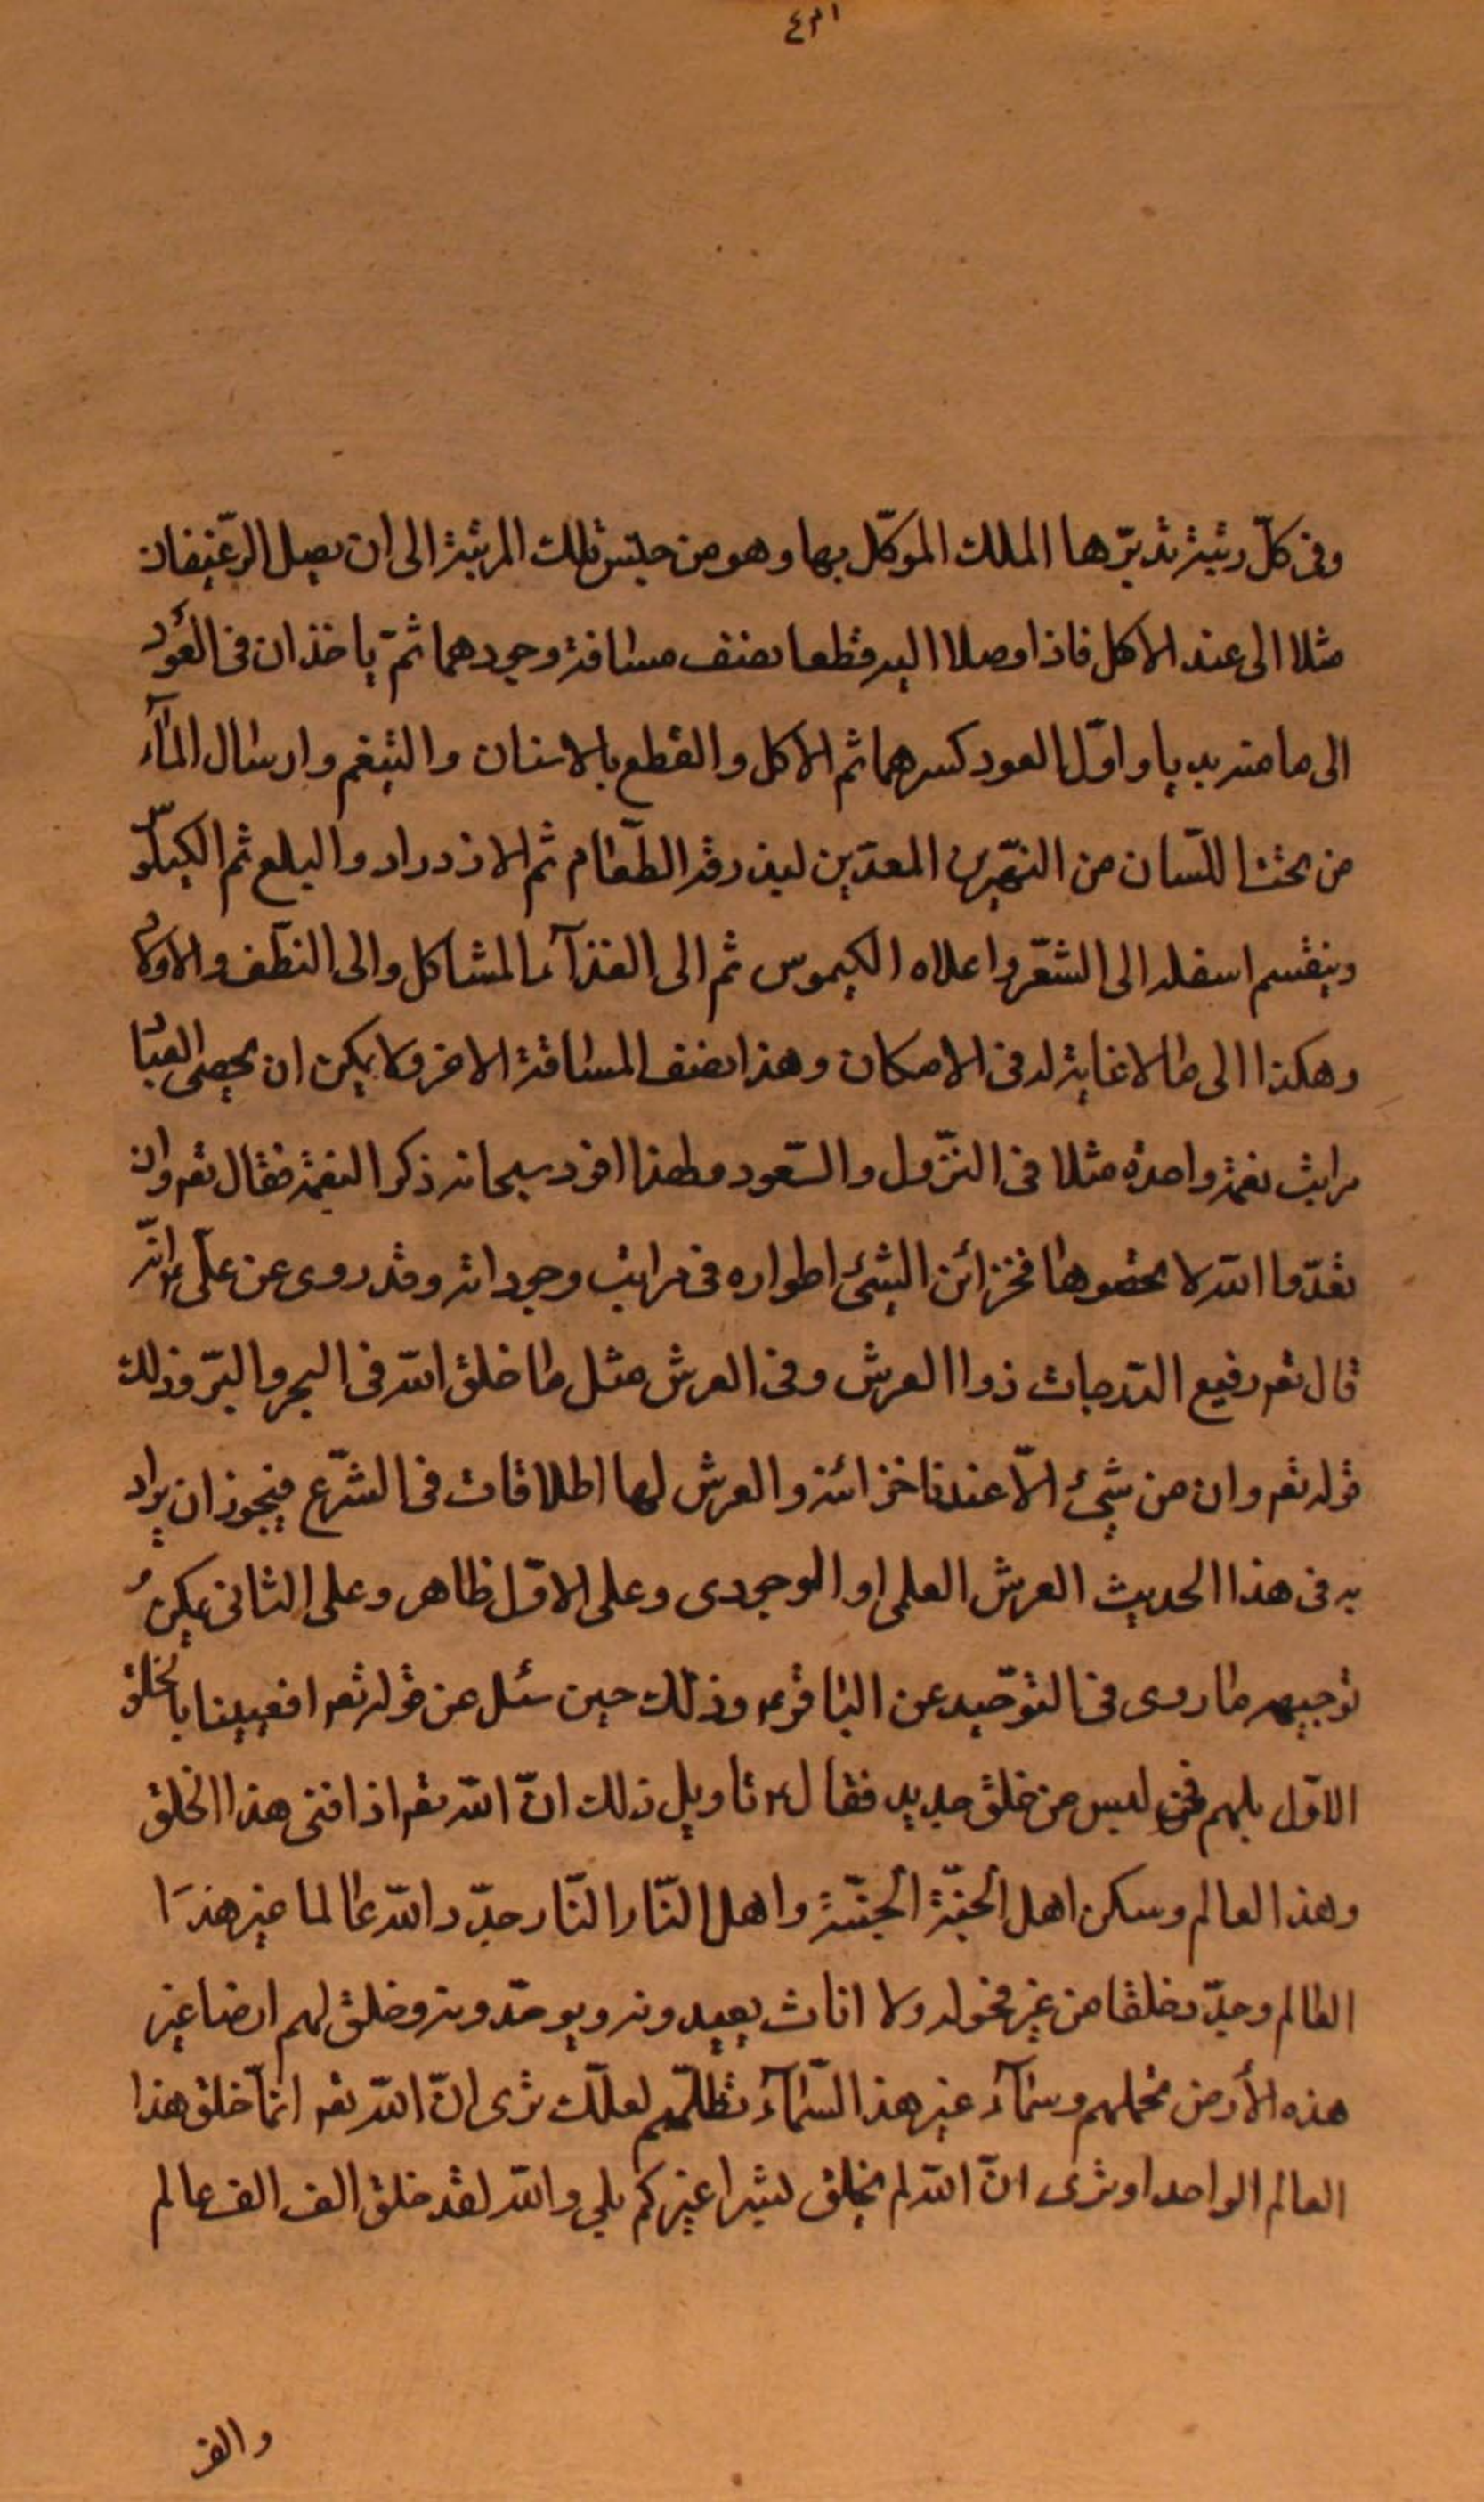 وفى كلّ رتبة تدبّرها الملك الموكّل بها وهو من جنس تلك المرتبة الى ان يصل الرّغيفان
مثلا الى عند الاكل فاذا وصلا اليه قطعا نصف مسافة وجودهما ثمّ ياخذان فى العود
الى ما منه بديا واوّل العود كسرهما ثم الاكل والقطع بالاسنان والتنغم وارسال المآء
من تحت اللّسان من النهرين المعدّين ليذ وقه الطّعام ثم الازدراد والبلع ثم الكيلوس
وينقسم اسفله الى الثفل واعلاه الكيموس ثم الى الغذآء المشاكل والى النطف والاولاد
وهكذا الى ما لا غاية له فى الامكان وهذا نصف المسافة الاخر ولا يمكن ان يحصى العباد
مراتب نعمة واحدة مثلا فى النزول والصّعود ولهذا افرد سبحانه ذكر النعمة فقال تعه وان
تعدّوا الله لا تحصوها فخزائن الشئ اطواره فى مراتب وجوداته وقد روى عن علىّ ع انّه
قال تعه رفيع الدّرجات ذوا العرش وفى العرش مثل ما خلق الله فى البحر والبرّ وذلك
قوله تعه وان من شئ الّا عندنا خزائنه والعرش لها اطلاقات فى الشّرع فيجوز ان يراد
به فى هذا الحديث العرش العلمى او الوجودى وعلى الاوّل ظاهر وعلى الثانى يمكن
توجيهه ما روى فى التوحيد عن الباقر ع وذلك حين سئل عن قوله تعه افعيينا بالخلق
الاوّل بل هم فى لبس من خلق جديد فقال ع تاويل ذلك انّ الله تعه اذا افنى هذا الخلق
وهذا العالم وسكن اهل الجنّة الجنّة واهل النّار النّار جدّد الله عالما غير هذا
العالم وجدّد خلقا من غير فحوله ولا اناث يعبدونه ويوحّدونه وخلق لهم ارضا غير
هذه الأرض تحملهم وسمآء غير هذا السّمآء تظلّهم لعلّك ترى انّ الله تعه انمّا خلق هذا
العالم الواحد او ترى انّ الله لم يخلق بشرا غيركم بلى والله لقد خلق الف الف عالم
والف